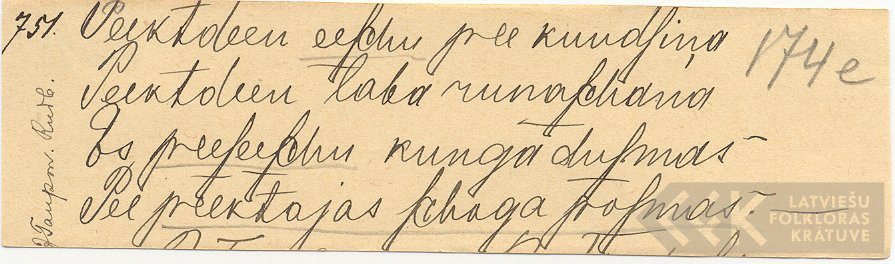 751. Peektdeen eeſchu pee kundſiņa
174e
Peektdeen laba runaſchaņa
Es peeſeeſchu kunga duſmas
Pee peektajas ſchoga ſtoſmas.
J. Taupow. Rudb.
LATVIEŠU
FOLKLORAS
KRĀTUVE